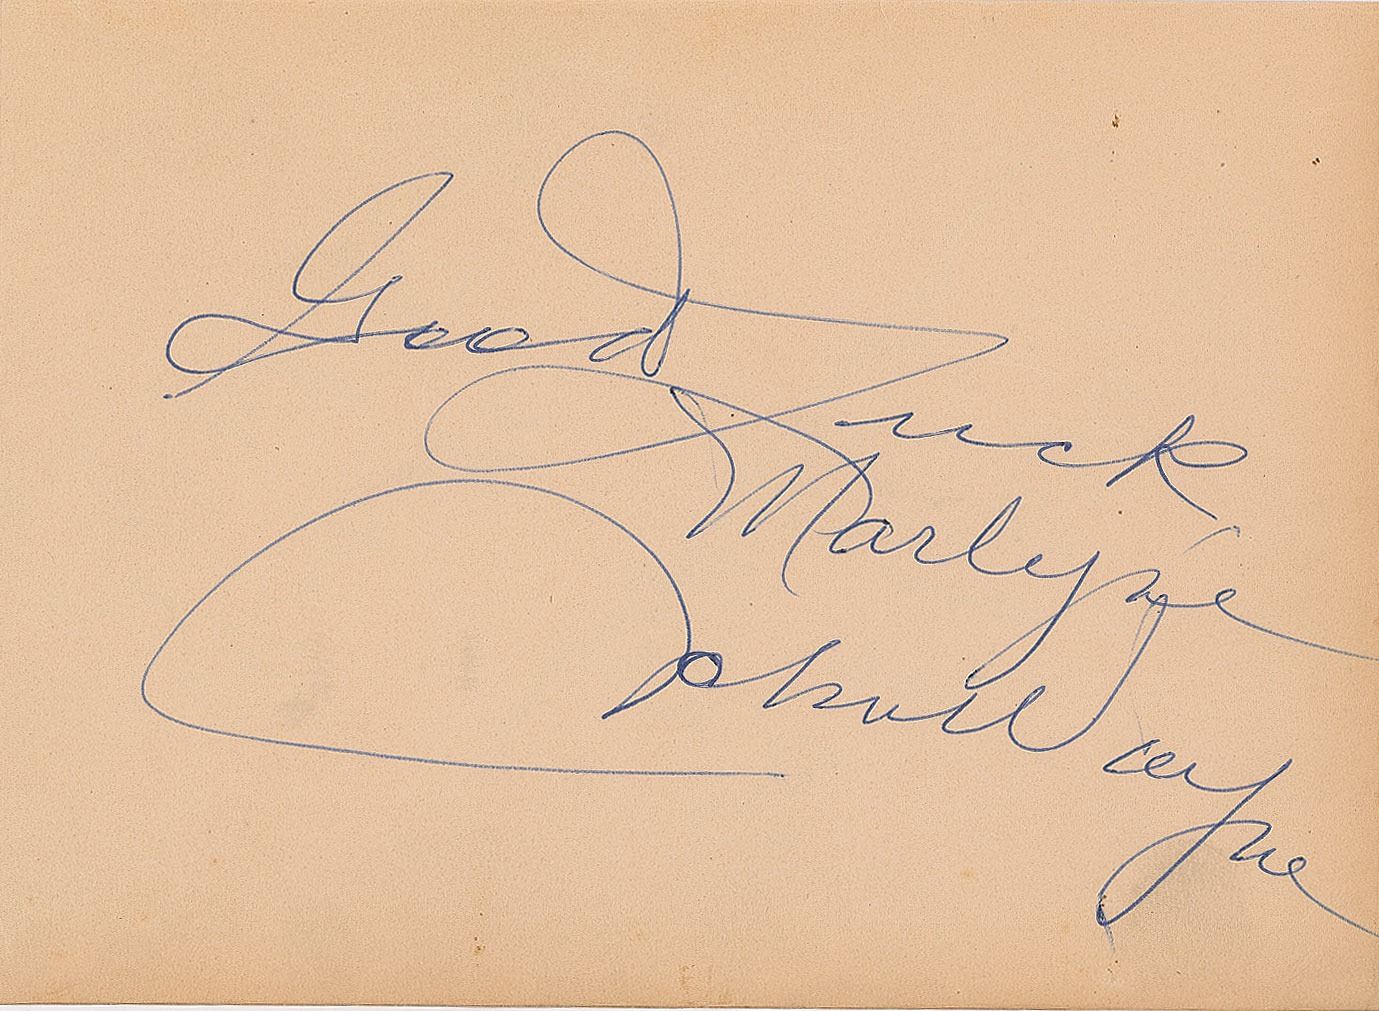 Good Luck
Marlyne
John Wayne